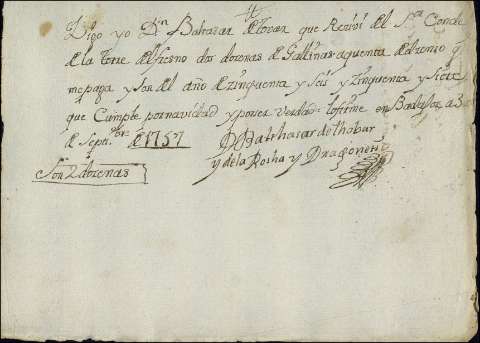 Digo yo Dn Baltasar de tovar que Reciví del Sor Conde
de la torre del fresno dos dozenas de Gallinas a quenta del zenso q
me paga y son del año de zinquenta y Seis y zinquenta y Siete
que Cumple por navidad y por ser Verdad lo firme en Badajoz a 3
de Septbre de 1757
D Balthasar de thobar
y de la Rocha y Dragoneti
Son 2 dozenas